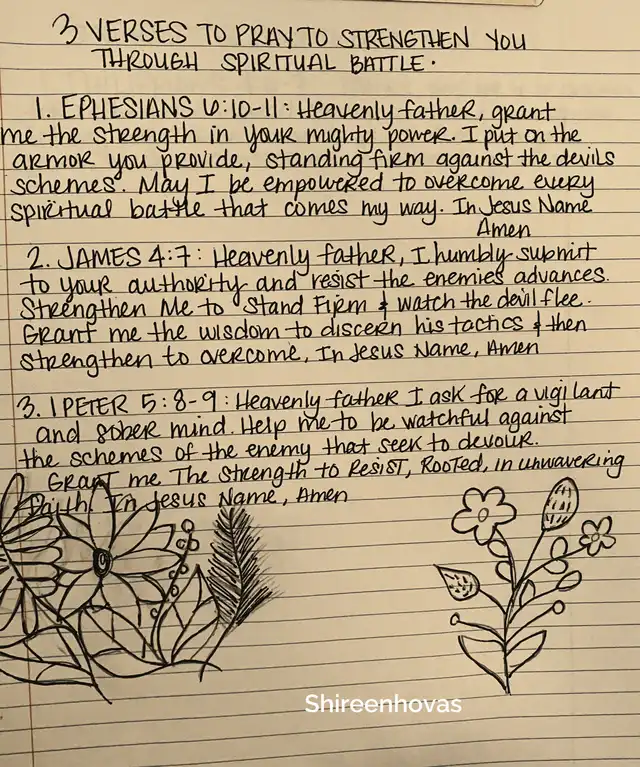 3 VERSES TO PRAY TO STRENGTHEN YOU
THROUGH SPIRITUAL BATTLE.
1. EPHESIANS 6:10-11: Heavenly father, grant
me the strength in your mighty power. I put on the
armor you provide, standing firm against the devils
schemes. May I be empowered to overcome every
spiritual battle that comes my way. In Jesus Name
Amen
2. JAMES 4:7: Heavenly father, I humbly submit
to your authority and resist the enemies advances.
Strengthen Me to Stand Firm & watch the devil flee.
Grant me the wisdom to discern his tactics & then
strengthen to overcome, In Jesus Name, Amen
3. 1 PETER 5:8-9: Heavenly father I ask for a vigilant
and sober mind. Help me to be watchful against
the schemes of the enemy that seek to devour.
Grant me The Strength to Resist, Rooted, in unwavering
Faith. In Jesus Name, Amen
Shireenhovas